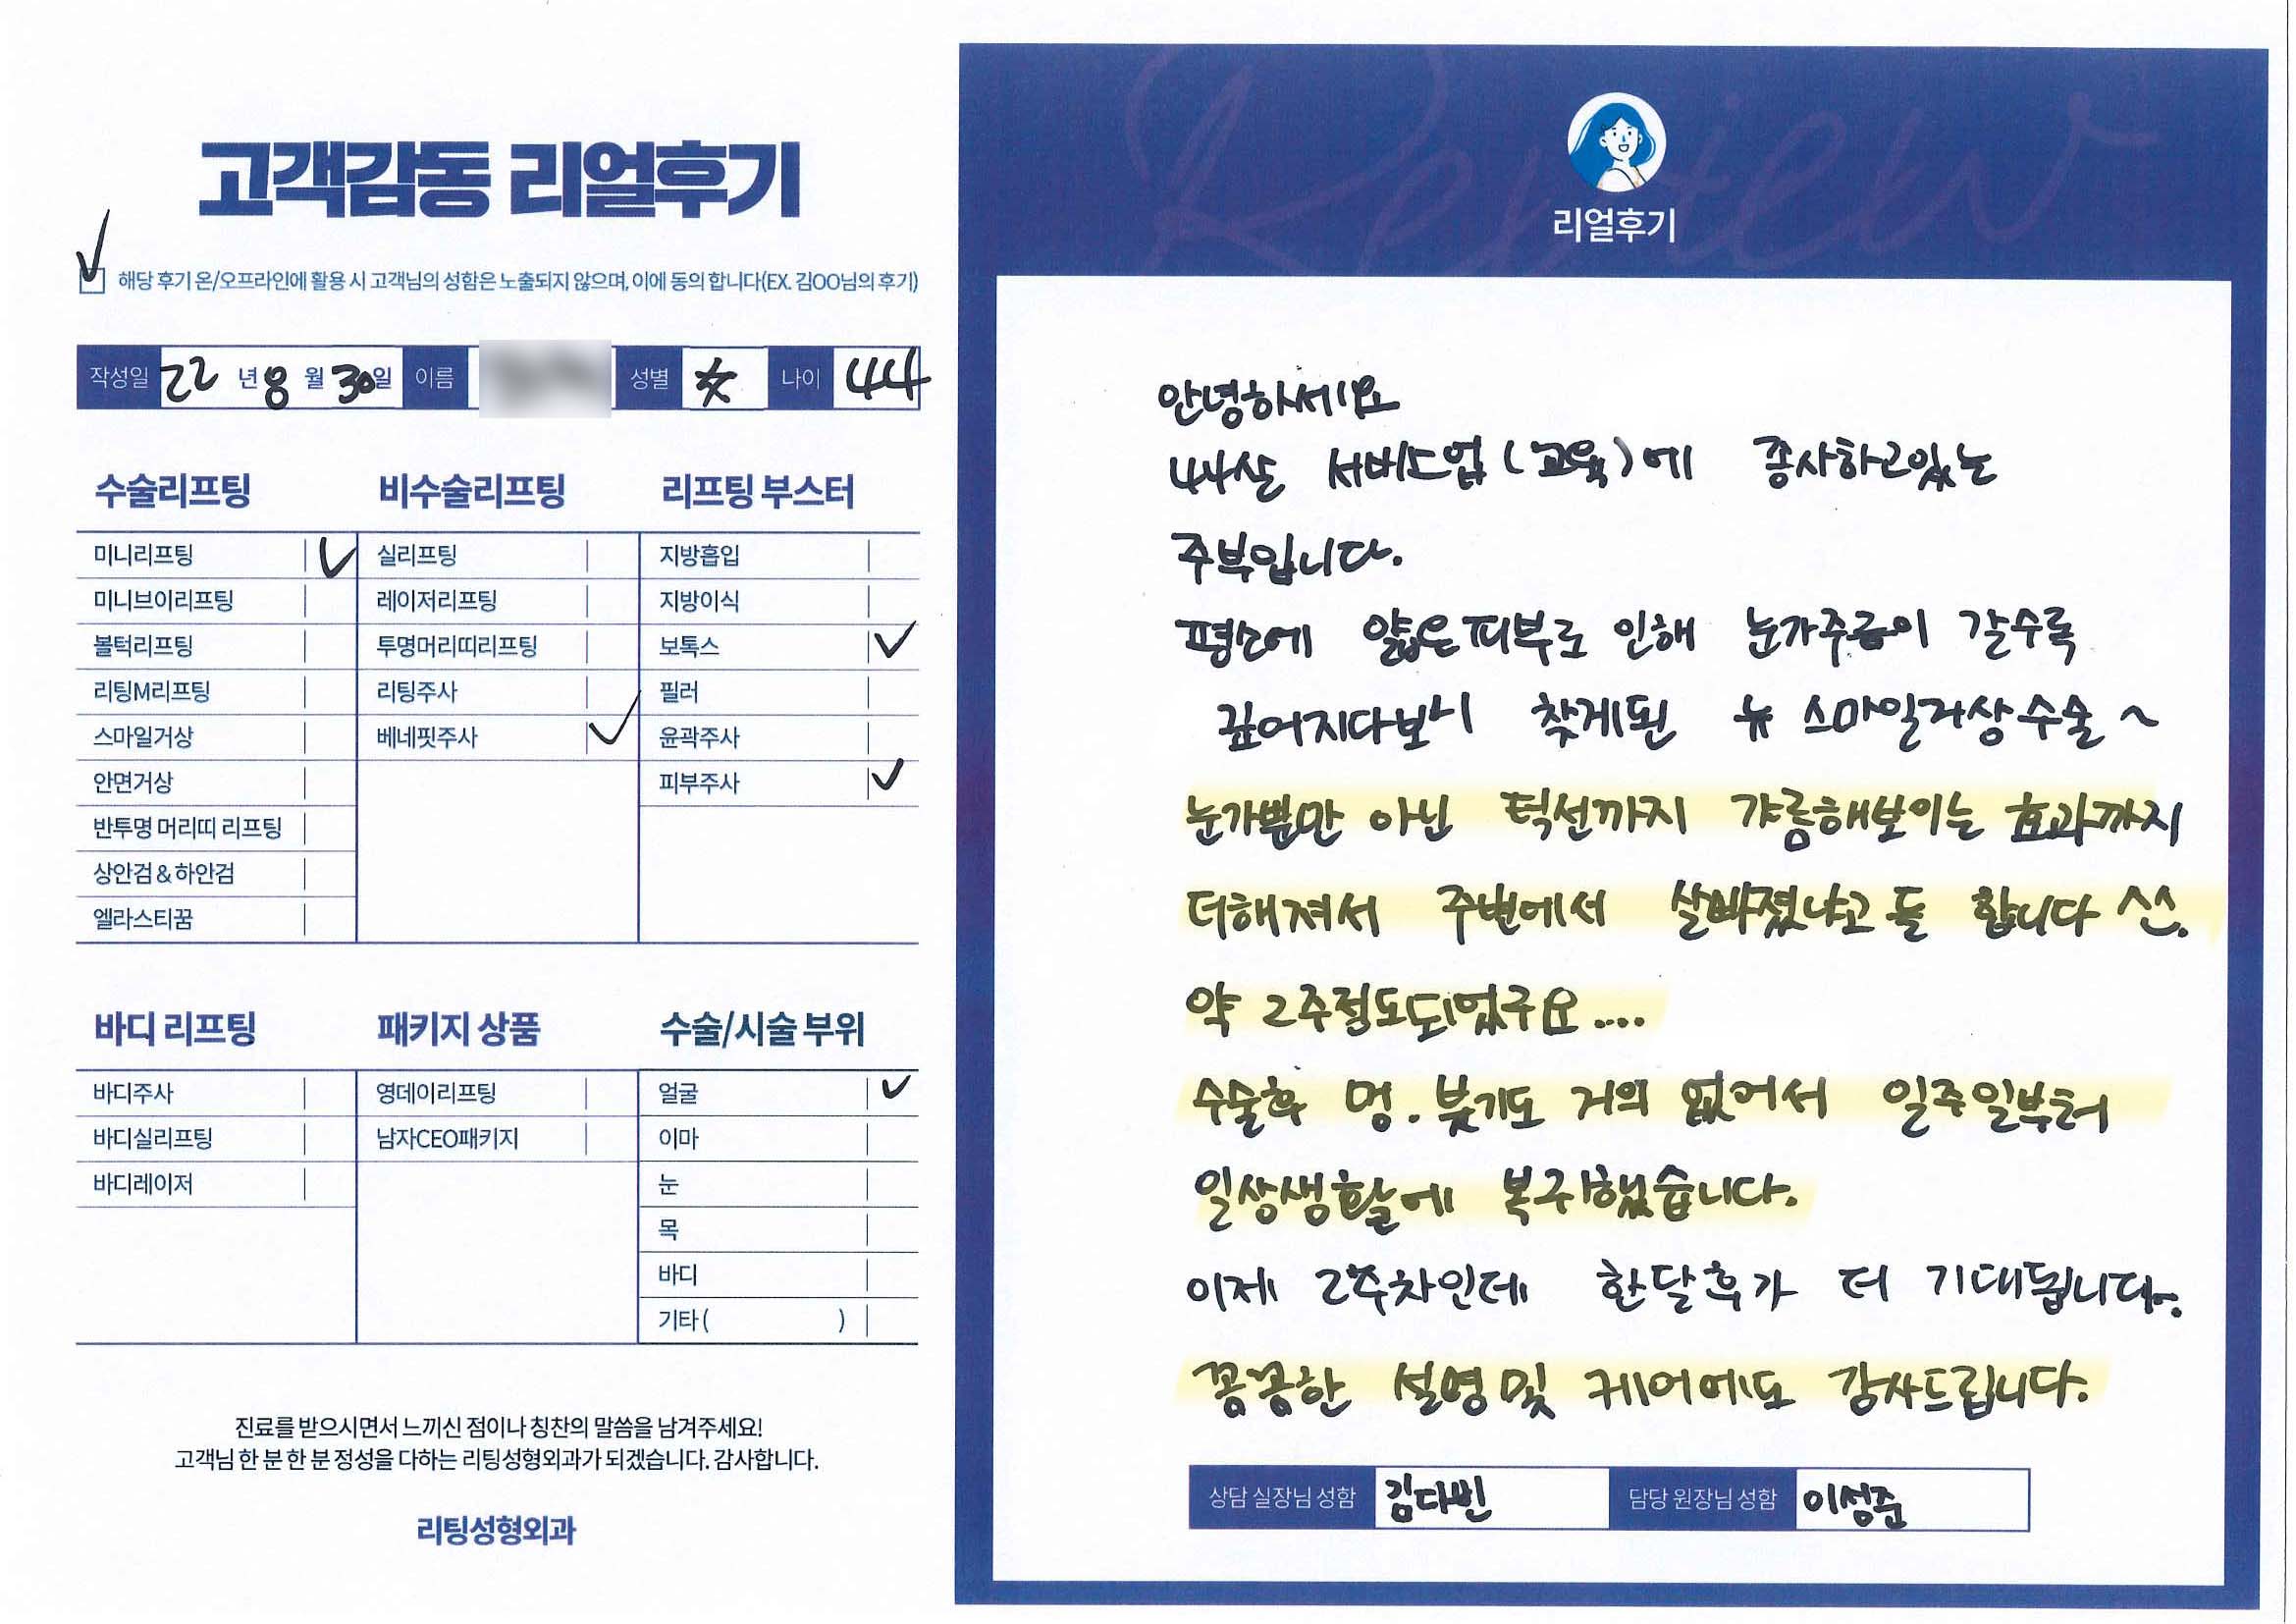 고객감동 리얼후기
해당 후기 온/오프라인에 활용 시 고객님의 성함은 노출되지 않으며, 이에 동의 합니다(EX. 김OO님의 후기)
작성일 22 년 8 월 30일 이름 성별 女 나이 44
수술리프팅
미니리프팅
미니브이리프팅
볼턱리프팅
리팅M리프팅
스마일거상
안면거상
반투명 머리띠 리프팅
상안검 & 하안검
엘라스티꿈
비수술리프팅
실리프팅
레이저리프팅
투명머리띠리프팅
리팅주사
베네핏주사
리프팅 부스터
지방흡입
지방이식
보톡스
필러
윤곽주사
피부주사
바디 리프팅
바디주사
바디실리프팅
바디레이저
패키지 상품
영데이리프팅
남자CEO패키지
수술/시술 부위
얼굴
이마
눈
목
바디
기타 ( )
진료를 받으시면서 느끼신 점이나 칭찬의 말씀을 남겨주세요!
고객님 한 분 한 분 정성을 다하는 리팅성형외과가 되겠습니다. 감사합니다.
리팅성형외과
Review
리얼후기
안녕하세요
44살 서비스업(교육)에 종사하고있는
주부입니다.
평소에 얇은피부로 인해 눈가주름이 갈수록
깊어지다보니 찾게된 뉴 스마일거상수술~
눈가뿐만 아닌 턱선까지 갸름해보이는 효과까지
더해져서 주변에서 살빠졌냐고들 합니다 ^^.
약 2주정도되었구요....
수술후 멍.붓기도 거의 없어서 일주일부터
일상생활에 복귀했습니다.
이제 2주차인데 한달후가 더 기대됩니다.
꼼꼼한 설명및 케어에도 감사드립니다.
상담 실장님 성함 김다빈 담당 원장님 성함 이성준